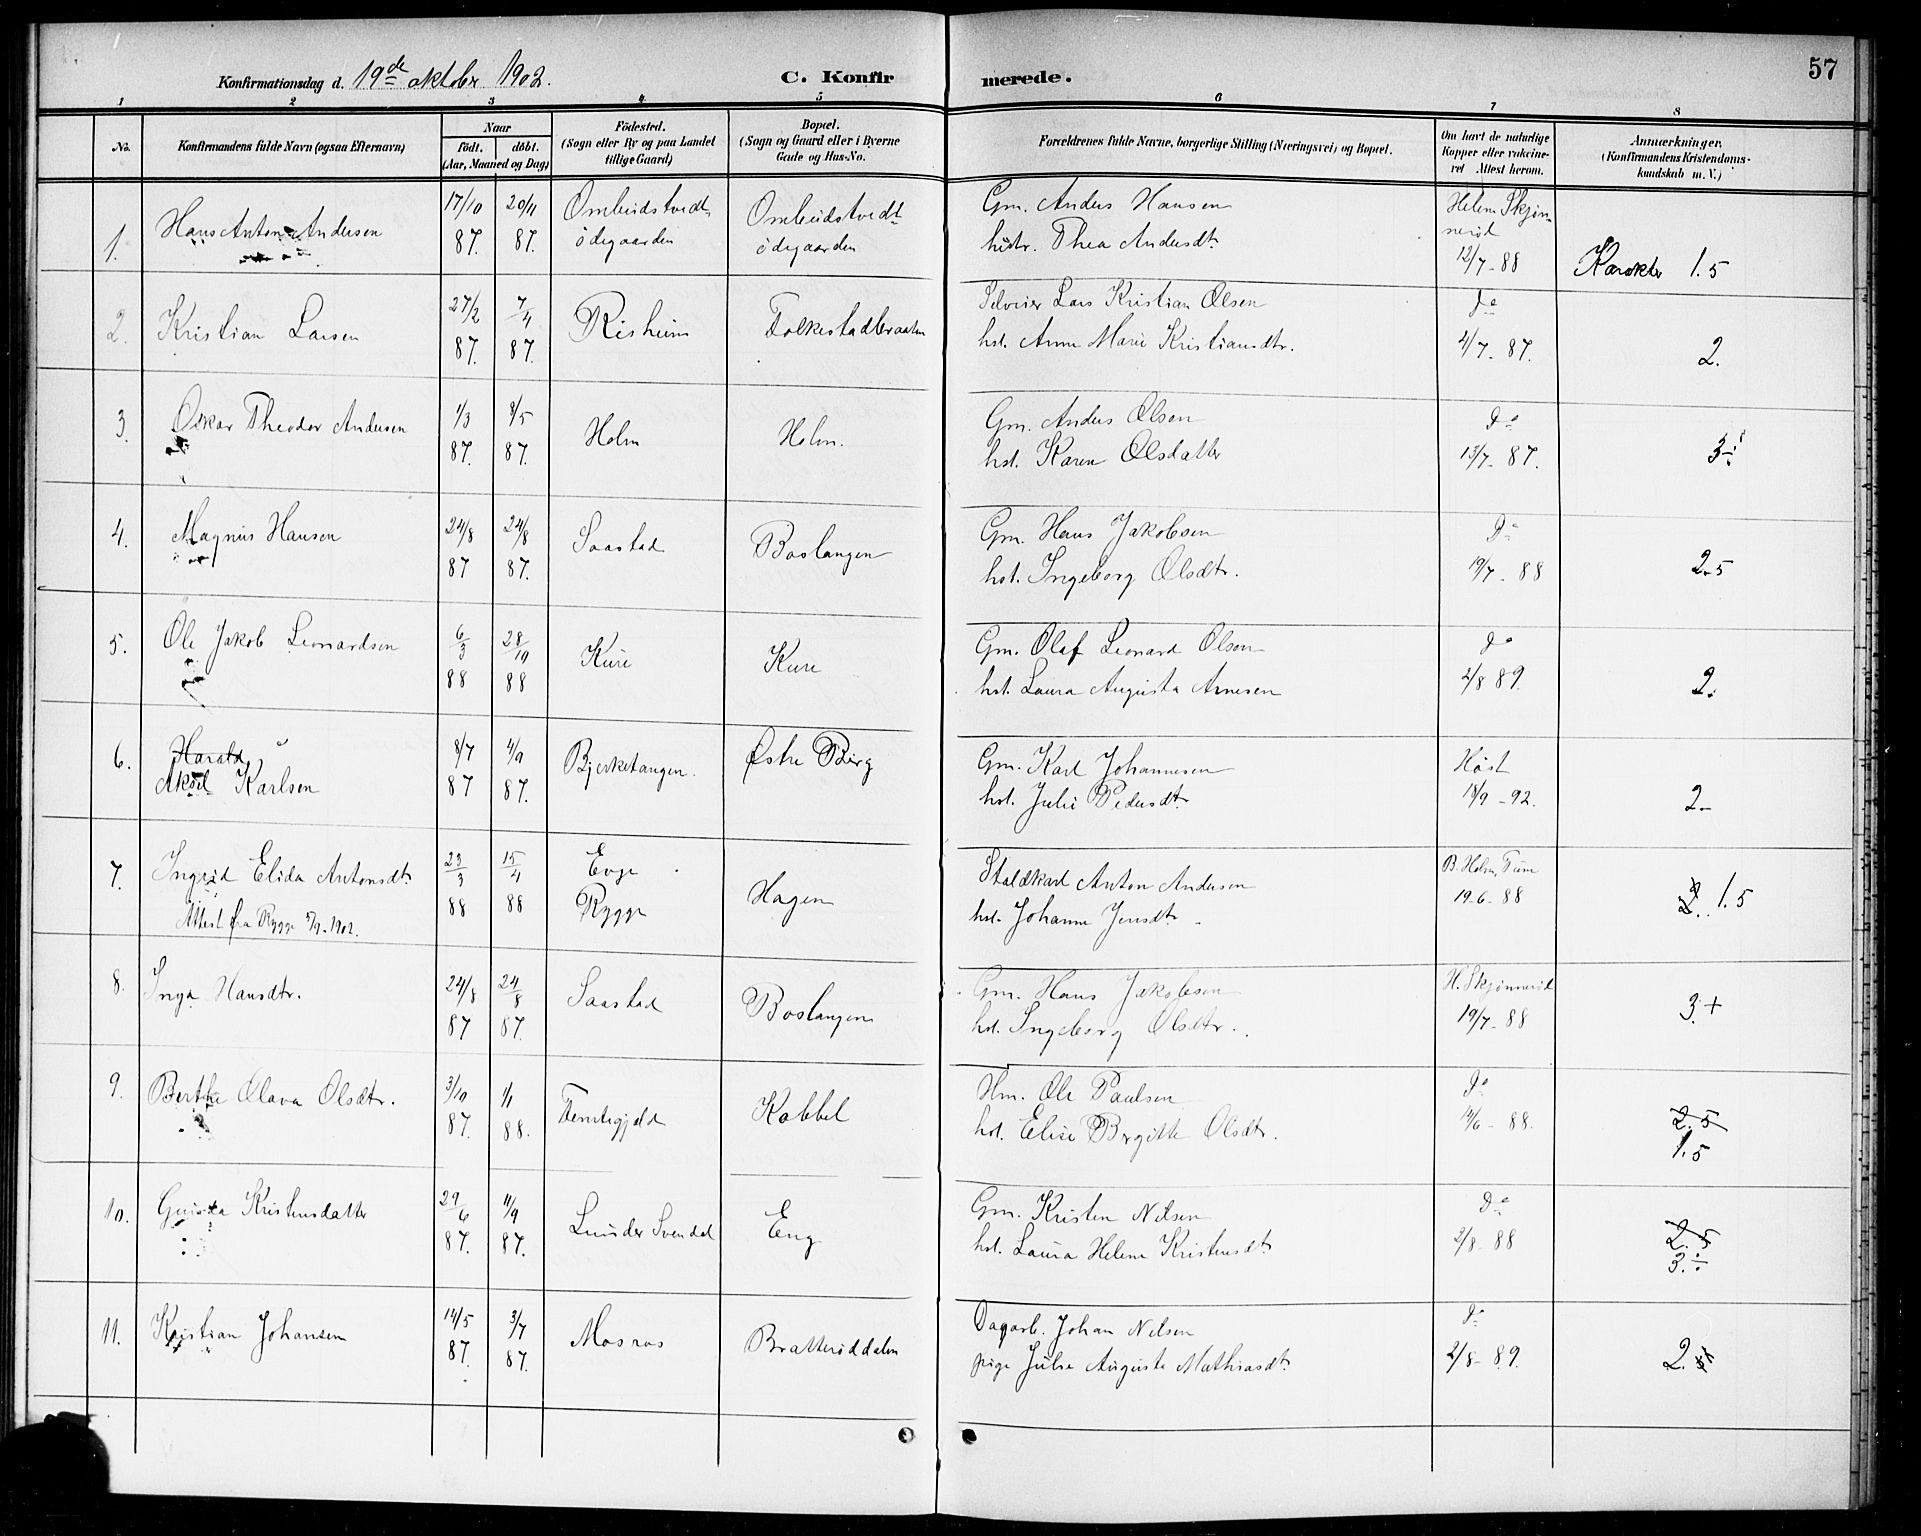 Konfirmationsdag d. 19de oktober 1902.
C. Konfirmerede.
57
1 2 3 4 5 6 7 8
No.
Konfirmandens fulde Navn (ogsaa Efternavn)
Naar
födt. döbt.
(Aar, Maaned og Dag)
Födested.
(Sogn eller By og paa Landet
tillige Gaard)
Bopæl.
(Sogn og Gaard eller i Byerne
Gade og Hus-No.
Forældrenes fulde Navne, borgerlige Stilling (Næringsvei) og Bopæl.
Om havt de naturlige
Kopper eller vakcine-
ret Attest herom.
Anmærkninger,
(Konfirmandens Kristendoms-
kundskab m. V.)
1. Hans Anton Andersen 17/10 87. 20/11 87. Ombudstvedt ödegaarden Ombudstvedt ödegaarden
Gm. Anders Hansen
hustr. Thea Andersdtr.
Helene Skjønnerød
12/7 - 88 Karakter 1.5
2. Kristian Larsen 27/2 87. 7/4 87. Risheim Folkestadbraaten
Selveier Lars Kristian Olsen
hst. Anne Marie Kristiansdtr.
Do
4/7 - 87. 2.
3. Oskar Theodor Andersen 1/3 87. 8/5 87. Holm Holm.
Gm. Anders Olsen
hst. Karen Olsdatter
Do
13/7 - 87. 3
4. Magnus Hansen 24/8 87 24/8 87. Saastad Boslangen
Gm. Hans Jakobsen
hst. Ingeborg Olsdtr.
Do
19/7 - 88 2.5
5. Ole Jakob Leonardsen 6/3 88 28/10 88 Kure Kure
Gm. Olaf Leonard Olsen
hst. Laura Augusta Arnesen
Do
2/8 89. 2.
6. Harald
Aksel Karlsen 8/7 87 4/9 87. Bjerketangen. Østre Berg
Gm. Karl Johannesen
hst. Julie Pedersdtr
Høst
18/9 - 92. 2-
7. Ingrid Elida Antonsdtr. 23/3 88 15/4 88 Evje Rygge Hagen
Attest fra Rygge 5/9 - 1902.
Staldkarl Anton Andersen
hst. Johanne Jensdtr
B. Holm, Tune
19-6-88 2. 1.5
8. Inga Hansdtr. 24/8 87 24/8 87. Saastad Boslangen
Gm. Hans Jakobsen
hst. Ingeborg Olsdtr.
H. Skjønnerød
19/7 - 88 3.+
9. Berthe Olava Olsdtr. 3/10 87. 1/1 88. Femtegjeld Kabbel
Hm. Ole Paulsen
hst. Elise Brgitte Olsdtr.
Do
14/6 - 88. 2.5
1.5
10. Kristensdatter 29/6 87. 11/9 87. Lunder Svendal Eng
Gm. Kristen Nilsen
hst. Laura Helene Kristensdtr
Do
2/8 - 88 2.5
3.÷
11. Kristian Johansen 14/5 87. 3/7 87. Mosros Bratterøddalen
Dagarb. Johan Nilsen
pige Julie Auguste Mathiasdtr
Do
2/8 - 89. 2.